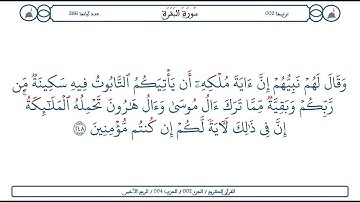 ترتيبها 002
سُورَةُ البَقَرَةِ
عدد آياتها 286
وَقَالَ لَهُمْ نَبِيُّهُمْ إِنَّ ءَايَةَ مُلْكِهِۦٓ أَن يَأْتِيَكُمُ التَّابُوتُ فِيهِ سَكِينَةٌ مِّن
رَّبِّكُمْ وَبَقِيَّةٌ مِّمَّا تَرَكَ ءَالُ مُوسَىٰ وَءَالُ هَٰرُونَ تَحْمِلُهُ الْمَلَٰٓئِكَةُ
إِنَّ فِي ذَٰلِكَ لَءَايَةً لَّكُمْ إِن كُنتُم مُّؤْمِنِينَ ٢٤٨
القرآن الكريم / الجزء 002 / الحزب 004 / الربع الأخير